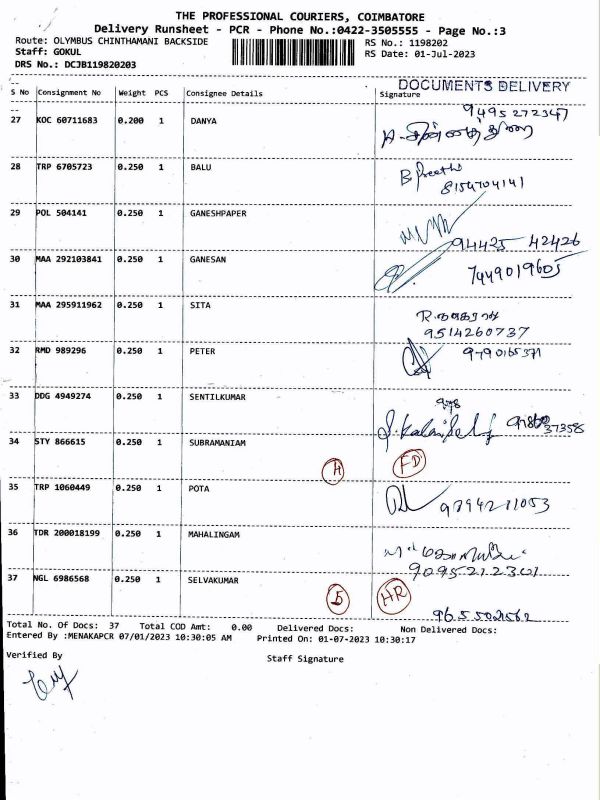 THE PROFESSIONAL COURIERS, COIMBATORE
Delivery Runsheet - PCR - Phone No.:0422-3505555 - Page No.:3
Route: OLYMBUS CHINTHAMANI BACKSIDE RS No.: 1198202
Staff: GOKUL RS Date: 01-Jul-2023
DRS No.: DCJB119820203
DOCUMENTS DELIVERY
S No Consignment No Weight PCS Consignee Details Signature
9495272347
27 KOC 60711683 0.200 1 DANYA
28 TRP 6705723 0.250 1 BALU
B. Preethi
8154704141
29 POL 504141 0.250 1 GANESHPAPER
94425 42426
30 MAA 292103841 0.250 1 GANESAN
7449019605
31 MAA 295911962 0.250 1 SITA
9514260737
32 RMD 989296 0.250 1 PETER
9790165371
33 DDG 4949274 0.250 1 SENTILKUMAR
978
34 STY 866615 0.250 1 SUBRAMANIAM
H FD
35 TRP 1060449 0.250 1 POTA
9794211053
36 TDR 200018199 0.250 1 MAHALINGAM
9095212301
37 NGL 6986568 0.250 1 SELVAKUMAR
HR
Total No. Of Docs: 37 Total COD Amt: 0.00 Delivered Docs: Non Delivered Docs:
Entered By :MENAKAPCR 07/01/2023 10:30:05 AM Printed On: 01-07-2023 10:30:17
Verified By Staff Signature